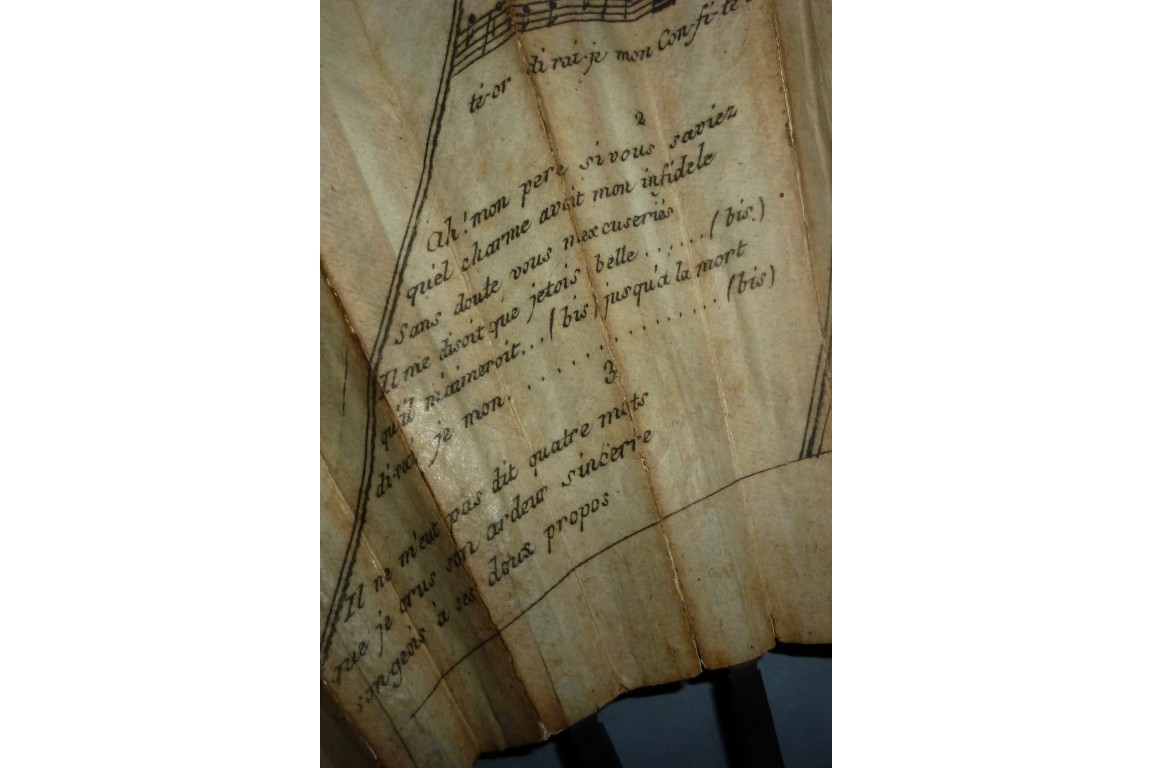 ti-or di rai-je mon Con-fi-te
2
Ah! mon pere si vous saviez
quel charme avoit mon infidele
sans doute vous mexcuseriés
Il me disoit que jetois belle ...... (bis.)
qu'il m'aimeroit... (bis) jusqu'a la mort
di-rai je mon. . . . . . . . . . . . . . . (bis)
3
Il ne m'eut pas dit quatre mots
que je crus son ardeur sincerre
songeois à ses doux propos